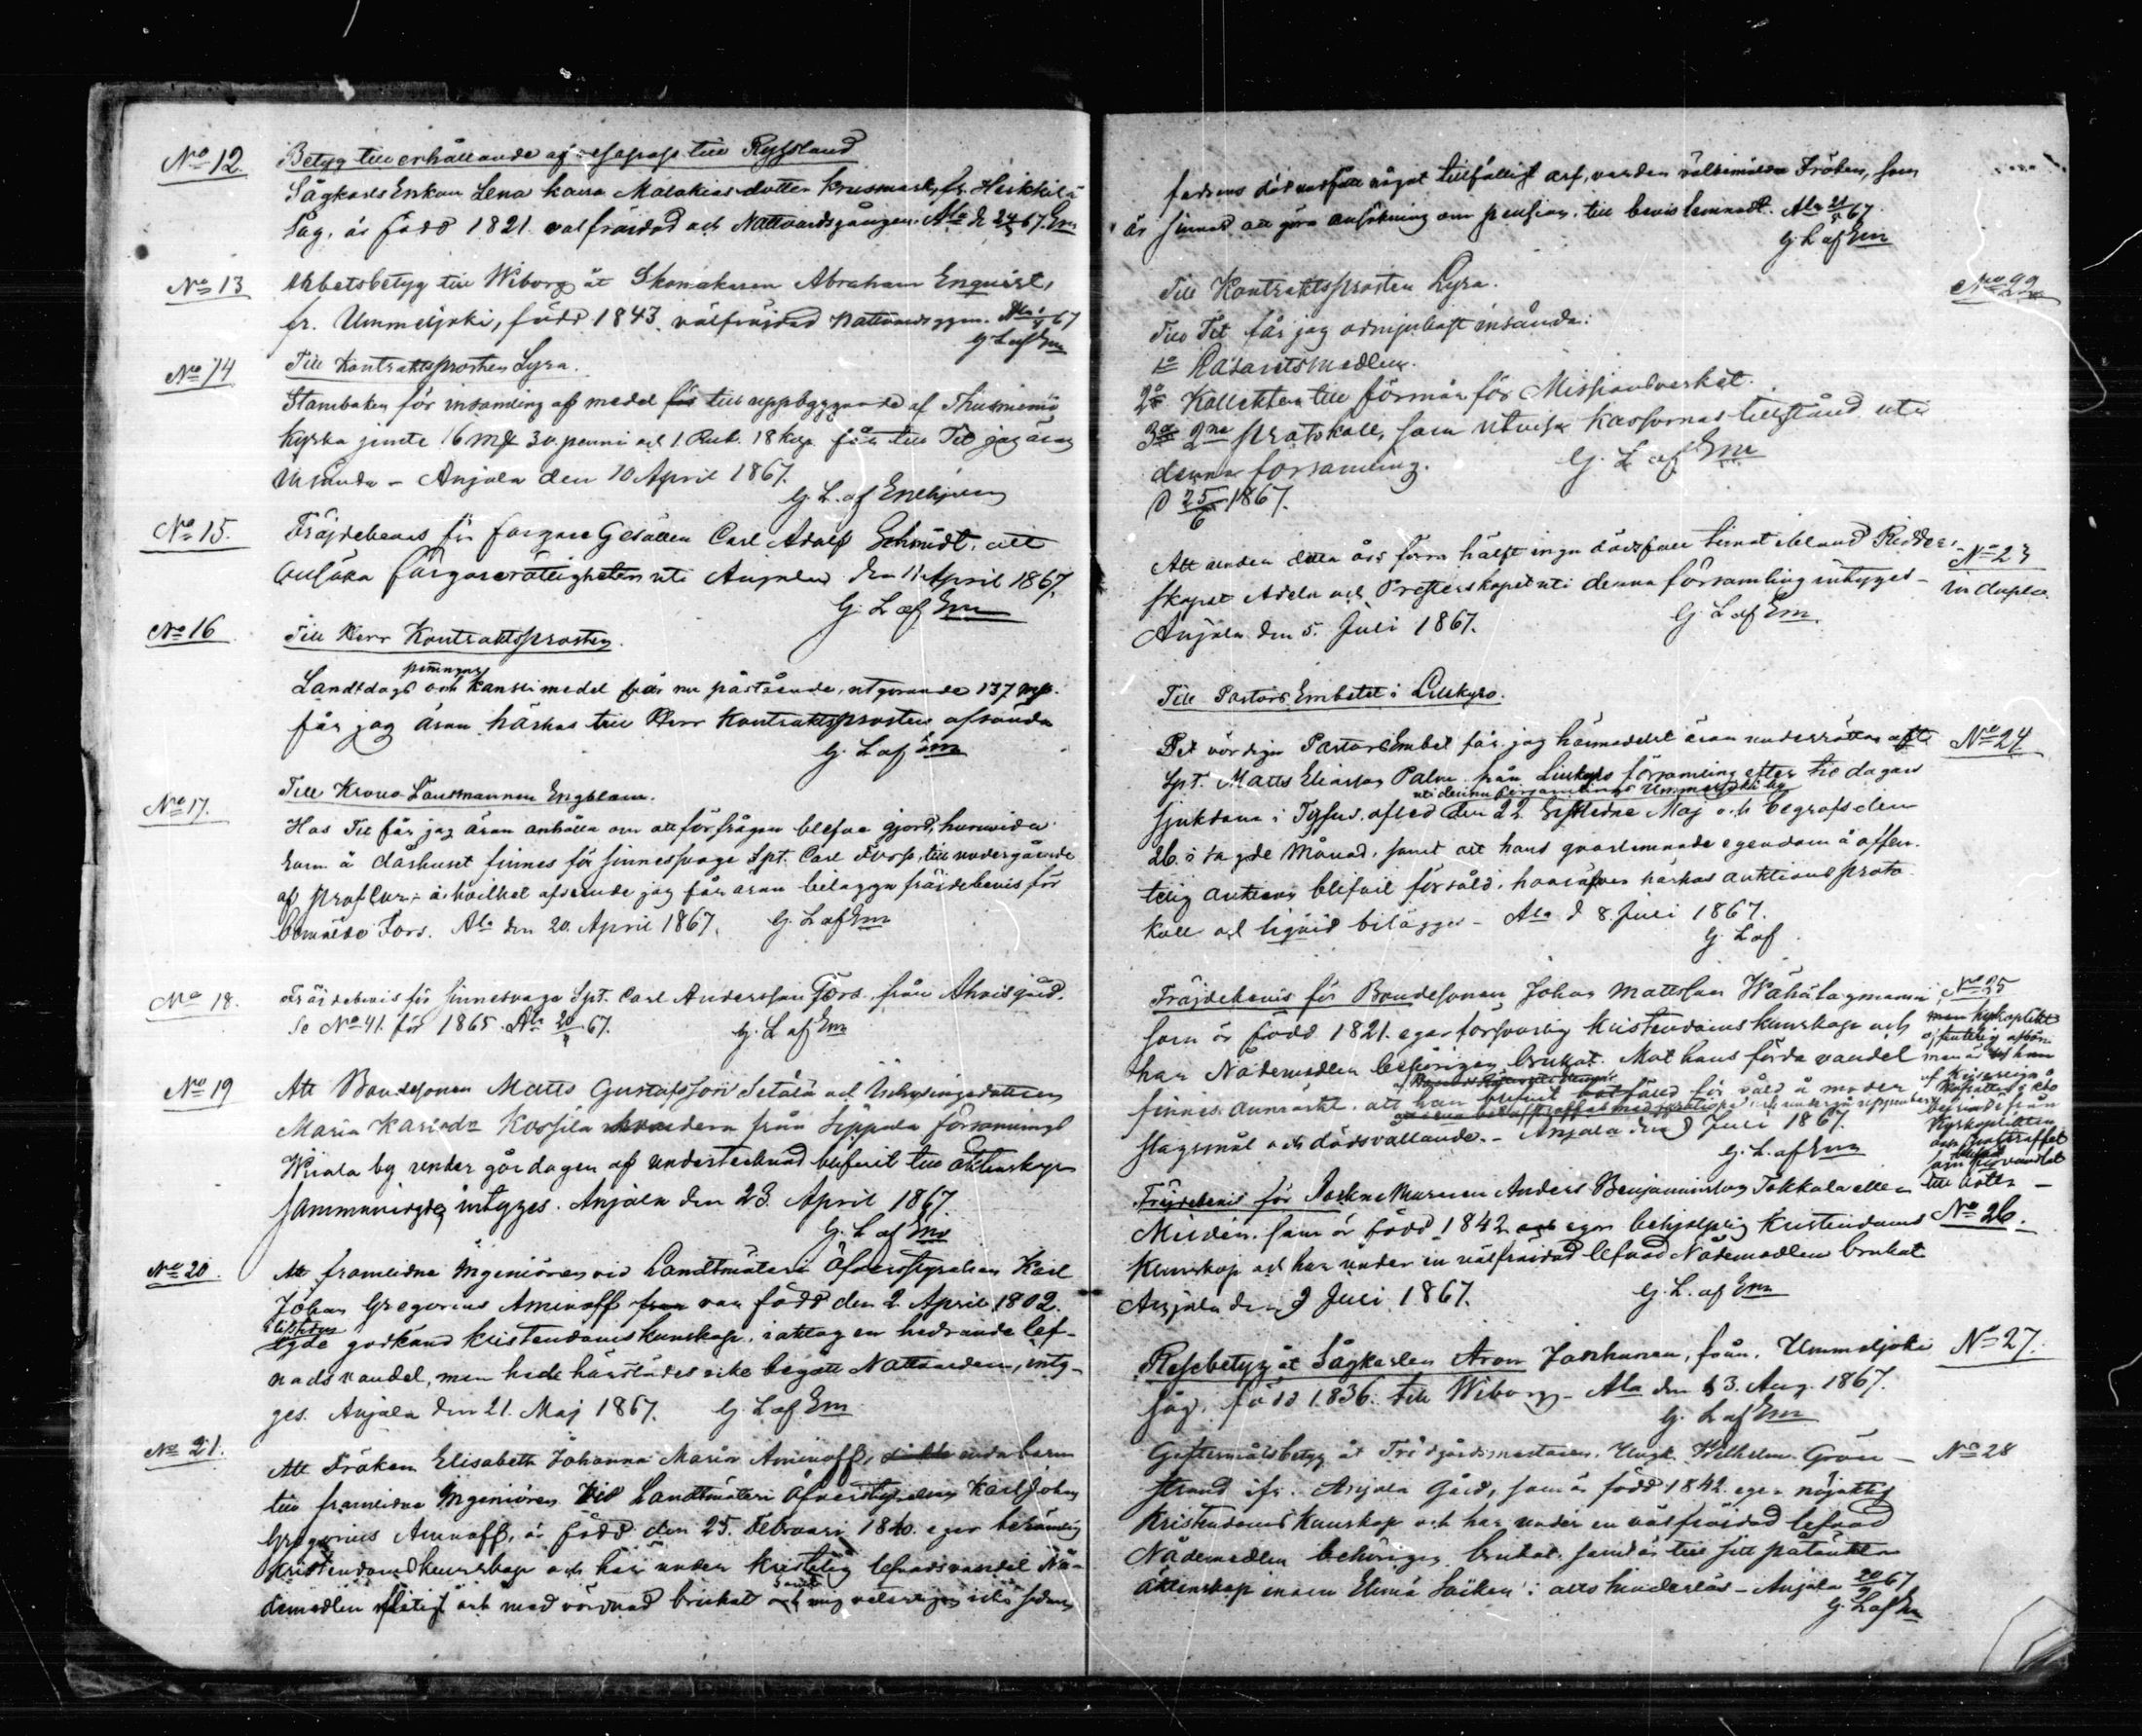 No 12. Betyg till erhållande af respass till Ryssland
Sågkarls Enkan Lena Kaisa Malakias dotter Krusmark, fr. Heikkilä
Såg, är född 1821. välfräjdad och Nattvardsgången. Ala d. 24 67. Em
No 13 Arbetsbetyg till Wiborg åt Skomakaren Abraham Enqvist,
fr. Ummeljoki, född 1843. välfräjdad nattvardsggen. Ala 67
G L af Em
No 14 Till Kontraktsprosten Lyra.
Stamboken för insamling af medel för till uppbyggande af Thusniemi
kyrka jemte 16 mk 30. penni och 1. Rub. 18 kop. får till Tit jag äran
insända – Anjala den 10 April 1867.
G. L. af Enehjelm
No 15. Fräjdebevis för färgare Gesällen Carl Adolf Schmidt. att
ansöka färgarerättigheten uti Anjala den 11 April 1867.
G. L af Em
No 16 Till Herr Kontraktsprosten.
penningar
Landtdags och Kanslimedel för nu påstående, utgörande 137 mk.
får jag äran härhos till Herr Kontraktsprosten afsända
G. L af Em
No 17. Till Krono Länsmannen Engblom.
Hos Tit får jag äran anhålla om att förfrågan blefve gjord, huruvida
rum å dårhuset finnes för sinnessvage Spt. Carl Fors, till undergående
af profkur, i hvilket afseende jag får äran bilägga fräjdebevis för
bemälde Fors. Ala den 20. April 1867. G. L af Em
No 18. Fräjdebevis för sinnessvage Spt. Carl Andersson Fors från Ahvis gård.
Se No 41. för 1865. Ala 20/4 67. G. L af Em
No 19 Att Bondesonen Matts Gustafsson Setälä och Inhysingsdottren
Maria Karlsdr Kossila från Sippola församlings
Wiiala by under gårdagen af undertecknad blifvit till äktenskap
sammanvigde, intygges. Anjala den 23. April 1867.
G. L af Em
No 20. Att framlidne Ingeniören vid Landtmäteri Öfverstyrelsen Karl
Johan Gregorius Aminoff från var född den 2. April 1802.
egde godkänd kristendomskunskap, iakttog en hedrande lef-
nadsvandel, men hade härstädes icke begått Nattvarden, intyg-
ges. Anjala den 21. Maj 1867. G. L af Em
No 21. Att Fröken Elisabeth Johanna Maria Aminoff, enda barn
till framlidne Ingeniören vid Landtmäteri Öfverstyrelsen Karl Johan
Gregorius Aminoff, är född den 25. Februari 1840. eger berömlig
Kristendomskunskap och har under kristelig lefnadsvandel Nå-
demedlen flitigt och med vördnad brukat samt mig veterligen icke sedan
fadrens död undfått något tillfälligt arf, varder välbemälda Fröken, som
är sinnad att göra ansökning om pension, till bevis lemnadt. Ala 21/5 67.
G L af Em
Till Kontraktsprosten Lyra. No 22
Till Tit får jag ödmjukast insända:
1o Vasaritsmedlen.
2o Kollekten till förmån för Missionsverket.
3o 2ne protokoll, som utvisa kassornas tillstånd uti
denna församling. G. L af Em
d 25/6 1867.
Att under detta års förra hälft inga dödsfall timat ibland Ridder- No 23
skapet Adeln och Presterskapet uti denna församling intyges – in duplo.
Anjala den 5. Juli 1867. G L af Em.
Till Pastors Embetet i Lillkyro.
Det vördiga Pastors Embet får jag härmedelst äran underrätta att No 24
Spt. Matts Eliasson Palm från Lillkyro församling efter tre dagars
uti denna församlings Ummeljoki by
sjukdom i Tyfus, afled den 22 sistledne Maj och begrofs den
26. i sagde Månad, samt att hans qvarlemnade egendom å offen-
telig auktion blifvit försåld, hvaröfver härhos auktionsproto-
koll och liqvid bilägges – Ala d 8. Juli 1867.
G. L af
Fräjdebevis för Bondesonen Johan Mattsson Wähälagmanni No 25
som är född 1821. eger försvarlig kristendomskunskap och
har Nådemedlen behörigen brukat. Mot hans förda vandel
finnes anmärkt, att han blifvit fäld för våld å moder
slagsmål och dödsvållande. – Anjala den 9 Juli 1867.
G. L. af Em
men kyrkoplikt
offentelig afbön
men är han
befriad från
Kyrkoplikten
Fräjdebevis för Anders Benjaminsson Takkala eller
Meiden. som är född 1842 och eger behjelplig Kristendoms No 26.
Kunskap och har under en välfräjdad lefnad Nådemedlen brukat
Anjala den 9 Juli 1867. G. L. af Em
Resebetyg åt Sågkarlen Aron Janhunen, från Ummeljoki No 27.
såg. född 1836. till Wiborg – Ala den 3. Aug. 1867.
G. L af Em
Giftermålsbetyg åt Trädgårdsmästaren. Ungk. Wilhelm Grön- No 28
strand ifr. Anjala Gård, som är född 1842. eger nöjaktig
Kristendoms Kunskap och har under en välfräjdad lefnad
Nådemedlen behörigen brukat, samt är till sitt påtänkta
äktenskap inom Elimä Socken: allts hinderlös – Anjala 20/9 67
G. L af Em